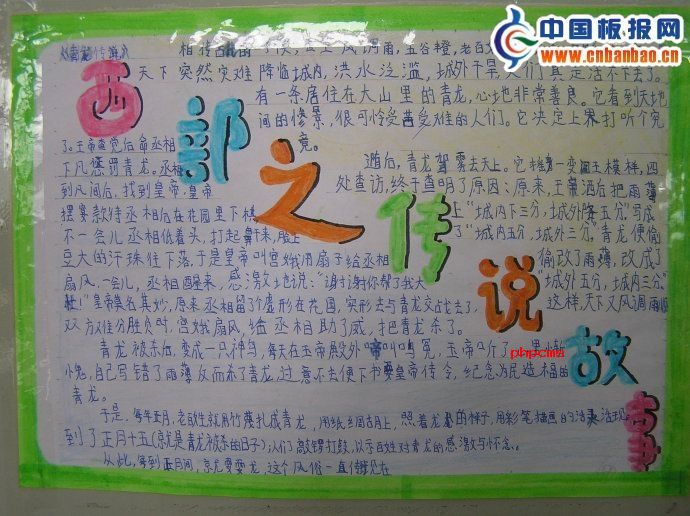 中国板报网
www.cnbanbao.cn
《青龙传说》
西部之传说故事
风调雨，五谷
天下突然灾难降临城内，洪水泛滥，城外干旱，人们真是活不下去了。
有一条居住在大山里的青龙，心地非常善良。它看到天地
间的惨景，很可怜受苦受难的人们。它决定上界打听个究
竟。
了。玉帝查觉后命丞相
下凡惩罚青龙。丞相
到凡间后，找到皇帝，皇帝
摆宴款待丞相后在花园里下棋
不一会儿丞相低着头，打起鼾来，脸上
豆大的汗珠往下落，于是皇帝叫宫娥用扇子给丞相
扇风，一会儿，丞相醒来，感激地说："谢谢你帮了我大
皇帝莫名其妙，原来丞相留个虚形在花园，实形去与青龙交战去了，
双方难分胜负时，宫娥扇风，给丞相助了威，把青龙杀了。
随后，青龙驾雾去天上。它摇身一变阎王模样，四
处查访，终于查明了原因：原来，玉帝酒后把雨簿
上"城内下三分，城外降五分"写成
了"城内五分，城外三分"。青龙便偷
偷改了雨薄，改成了
"城外五分，城内三分"
这样，天下又风调雨顺
phpcms
青龙被杀后，变成一只神鸟，每天在玉帝殿外叫冤，玉帝
小鬼，自己写错了雨薄反而杀了青龙，过意不去便下书要皇帝传令，纪念为民造福的
青龙。
于是，每年正月，老百姓就用竹篾扎成青龙，用纸糊在上，照着龙的样子，用彩笔描画的活灵活现，
到了正月十五（就是青龙被杀的日子）；人们敲锣打鼓，以示百姓对青龙的感激与怀念。
从此，每到正月间，就龙要耍龙，这个风俗一直传到现在